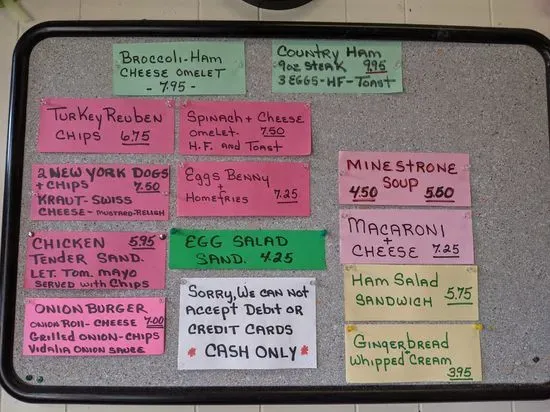 Broccoli-Ham
Cheese Omelet
- 7.95 -
Country Ham
9oz Steak 9.95
3 Eggs-HF-Toast
Turkey Reuben
Chips 6.75
Spinach + Cheese
Omelet. 7.50
H.F. and Toast
2 New York Dogs
+ Chips 7.50
Kraut-Swiss
Cheese-Mustard-Relish
Eggs Benny
+
Homefries 7.25
Minestrone
Soup
4.50 5.50
Chicken 5.95
Tender Sand.
Let. Tom. Mayo
Served with Chips
Egg Salad
Sand. 4.25
Macaroni
+
Cheese 7.25
Onion Burger
Onion Roll-Cheese 7.00
Grilled Onion-Chips
Vidalia Onion Sauce
Sorry, We can not
Accept Debit or
Credit Cards
* Cash Only *
Ham Salad
Sandwich 5.75
Gingerbread
+
Whipped Cream
3.95